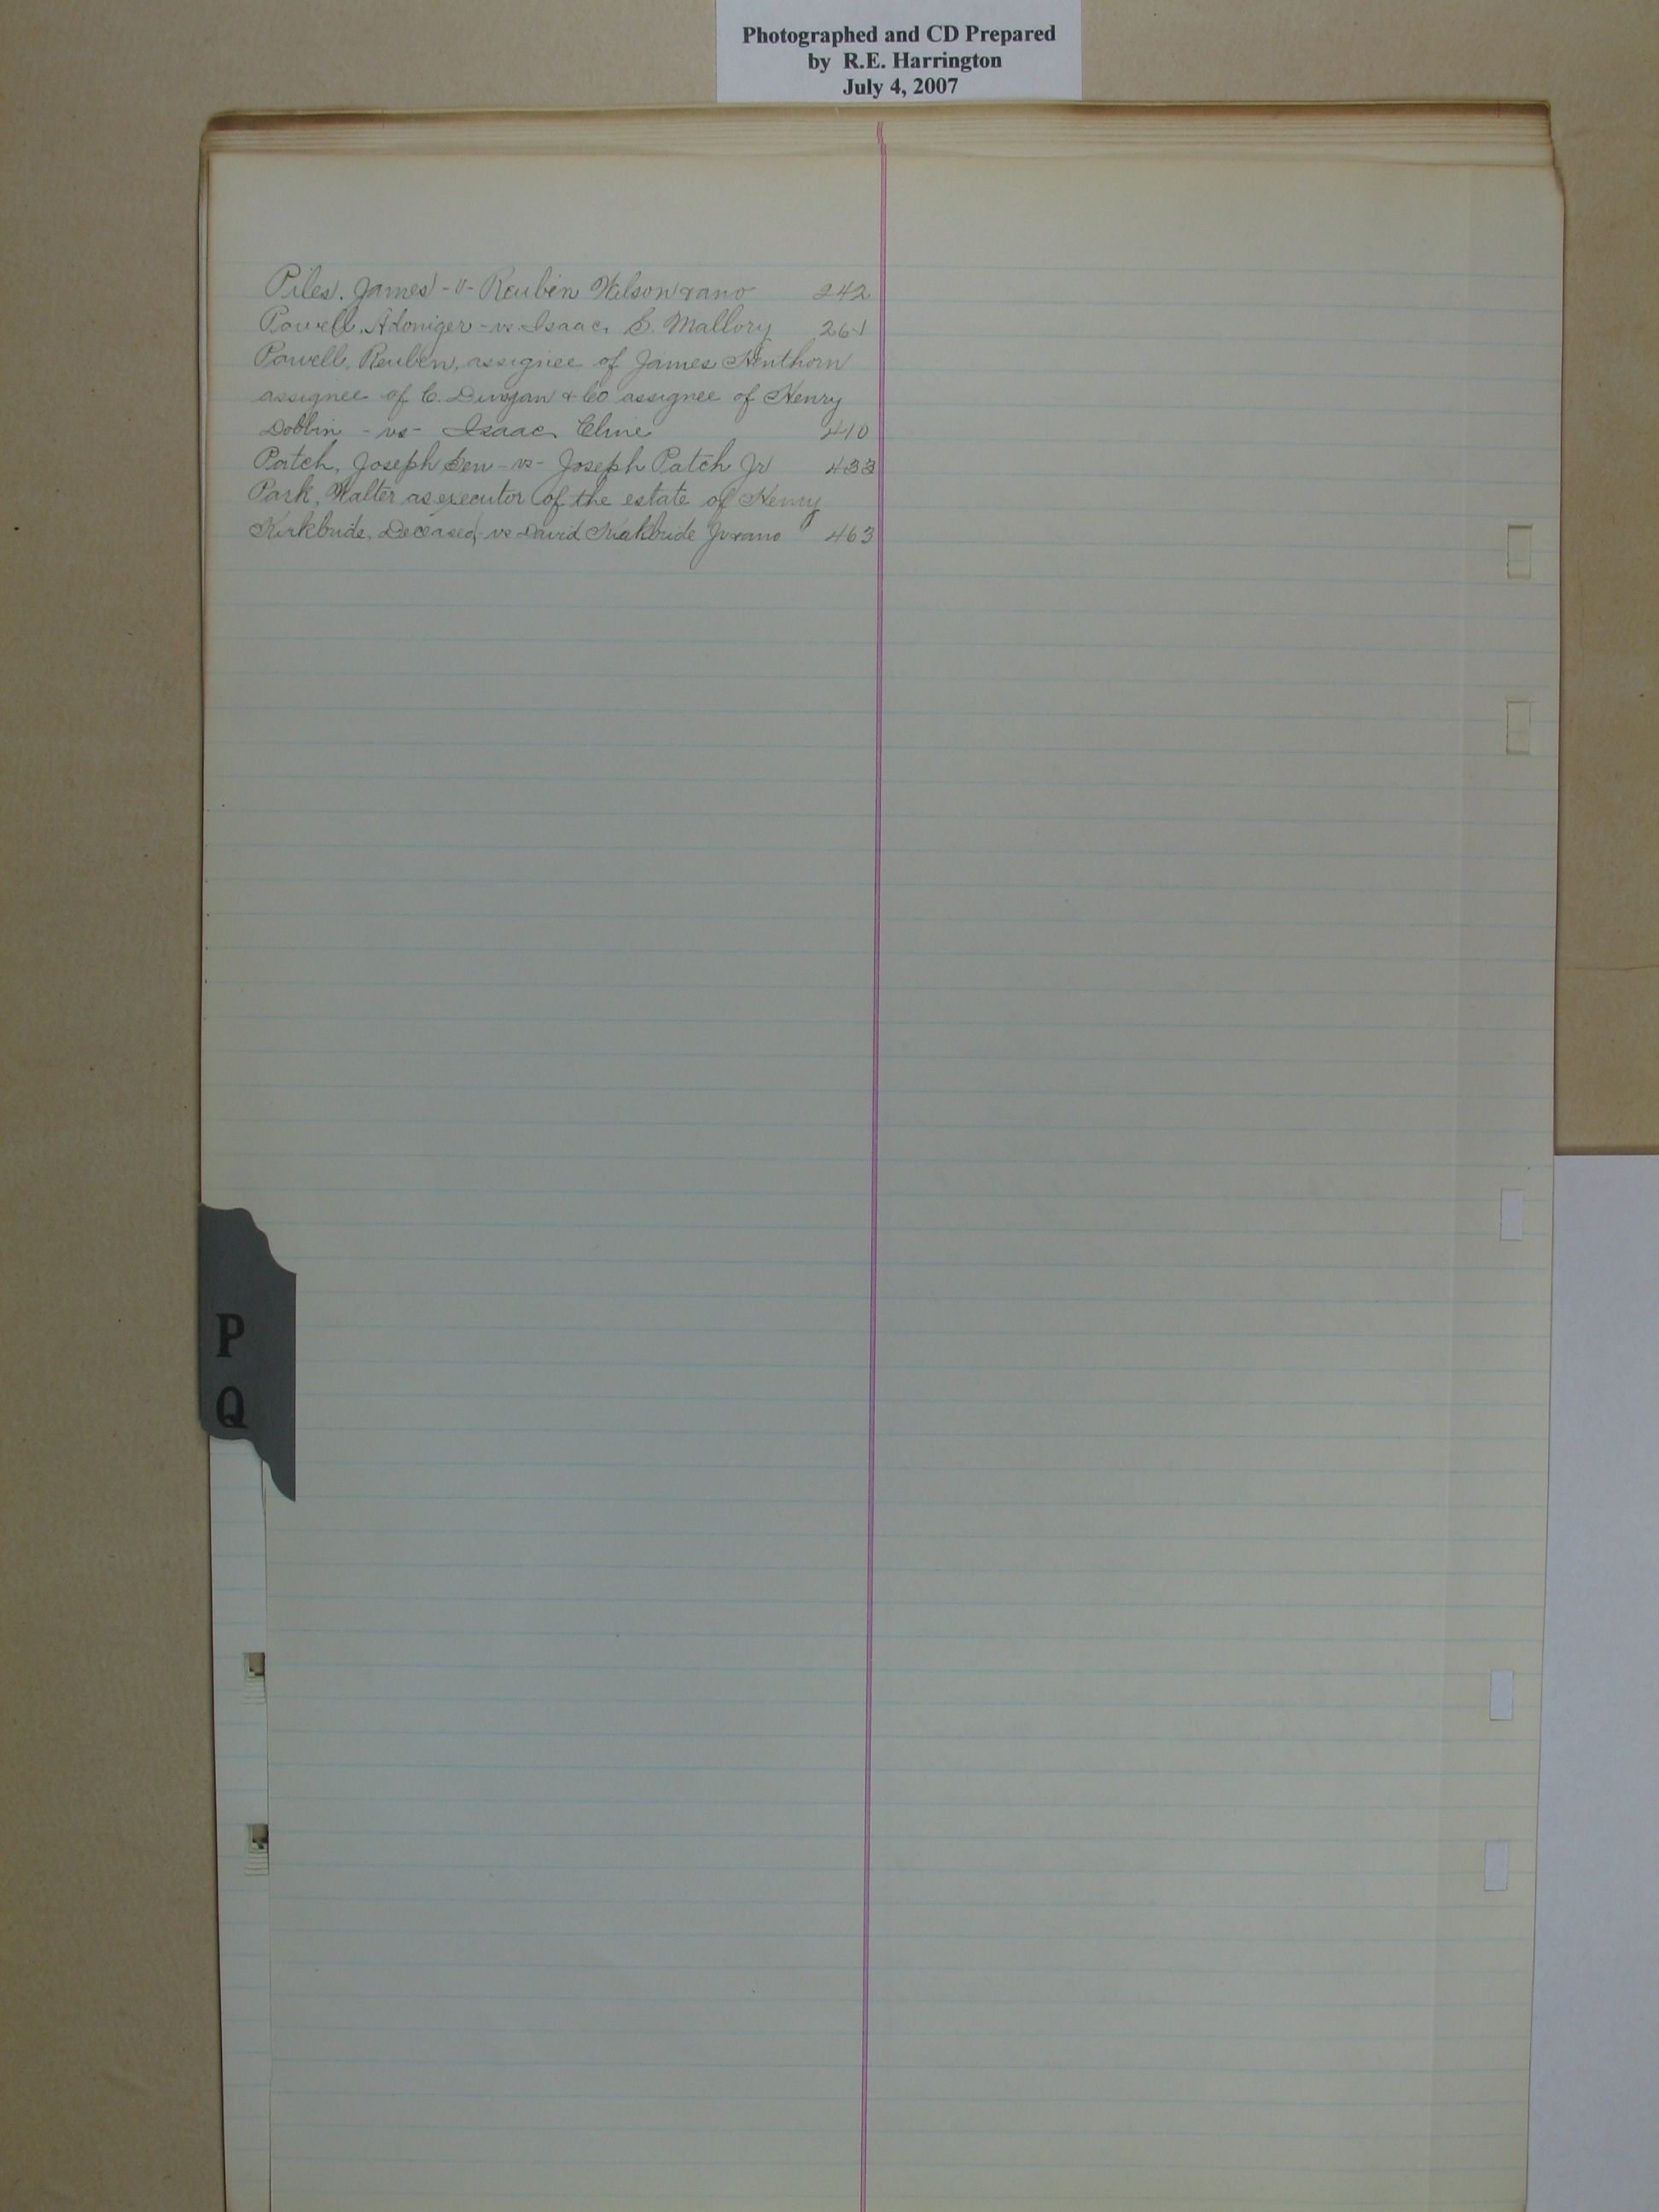 Photographed and CD Prepared
by R.E. Harrington
July 4, 2007
Piles, James -v- Reuben Wilson & ano 242
Powell, Adoniger -vs- Isaac S. Mallory 261
Powell, Reuben, assignee of James Henthorn
assignee of C. Dungan & Co assignee of Henry
Dobbin -vs- Isaac Cline 410
Patch, Joseph Sen -vs- Joseph Patch Jr 433
Park, Walter as executor of the estate of Henry
Kirkbride, Deceased, -vs David Kirkbride Jr & ano 463
P
Q